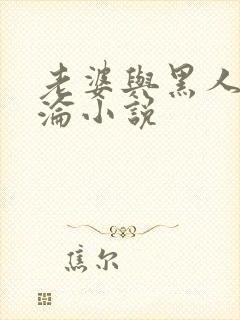 老婆與黑人
淪小說
焦尔